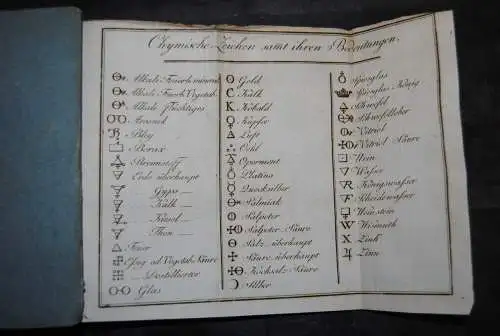 Chymische Zeichen samt ihren Bedeutungen.
Alkali Feuerb: mineral
Alkali Feuerb: Vegetab:
Alkali flüchtiges
Arsenik
Bley
Borax
Brennstoff
Erde überhaupt
Gyps
Kalk
Kiesel
Thon
Feuer
Essig od. Vegetab: Säure
Destillierter
Glas
Gold
Kalk
Kobald
Kupfer
Luft
Oehl
Operment
Platina
Quecksilber
Salmiak
Salpeter
Salpeter Säure
Salz überhaupt
Säure überhaupt
Kochsalz Säure
Silber
Spiesglas
Spiesglas König
Schwefel
Schwefelleber
Vitriol
Vitriol Säure
Wein
Wasser
Königswasser
Scheidewasser
Weinstein
Wismuth
Zink
Zinn